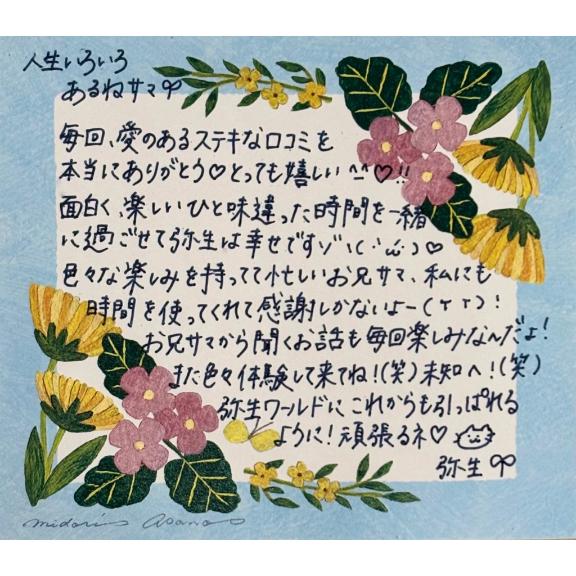 人生いろいろ
あるねサマ
毎回、愛のあるステキな口コミを
本当にありがとう♡とっても嬉しい^^♡!!
面白く、楽しいひと味違った時間を一緒
に過ごせて弥生は幸せです
色々な楽しみを持ってて忙しいお兄サマ、私にも
時間を使ってくれて感謝しかないよー(TT)!
お兄サマから聞くお話も毎回楽しみなんだよ!
また色々体験して来てね!(笑)未知へ!(笑)
弥生ワールドにこれからも引っぱれる
ように!頑張るネ♡
弥生
Midori Asano